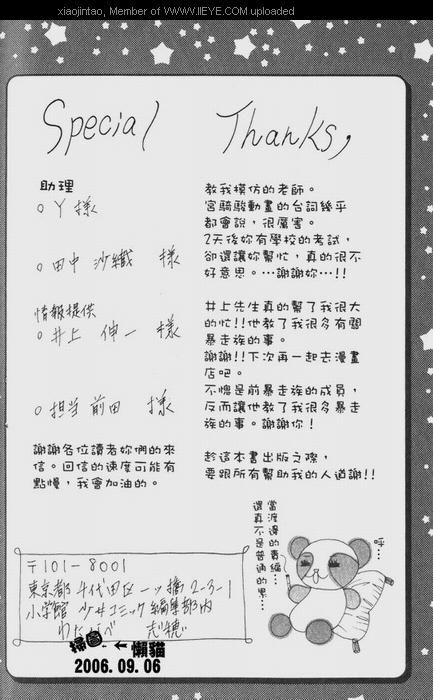 xiaojintao, Member of WWW.IIEYE.COM uploaded
Special Thanks,
助理
○ Y 樣
○ 田中 沙織 樣
情報提供
○ 井上 伸一 樣
○ 担当 前田 樣
謝謝各位讀者妳們的來
信。回信的速度可能有
點慢，我會加油的。
教我模仿的老師。
宮騎駿動畫的台詞幾乎
都會說，很厲害。
2天後妳有學校的考試，
卻還讓妳幫忙，真的很不
好意思。…謝謝妳…!!
井上先生真的幫了我很大
的忙!!他教了我很多有關
暴走族的事。
謝謝!!下次再一起去漫畫
店吧。
不愧是前暴走族的成員，
反而讓他教了我很多暴走
族的事。謝謝你！
趁這本書出版之際，
要跟所有幫助我的人道謝!!
當渡邊的責編…
還真不是普通的累…
呼…
〒101-8001
東京都千代田区一ツ橋2-3-1
小学館 少女コミック編集部内
わたなべ 志穂
掃圖 ← 懶貓
2006. 09. 06